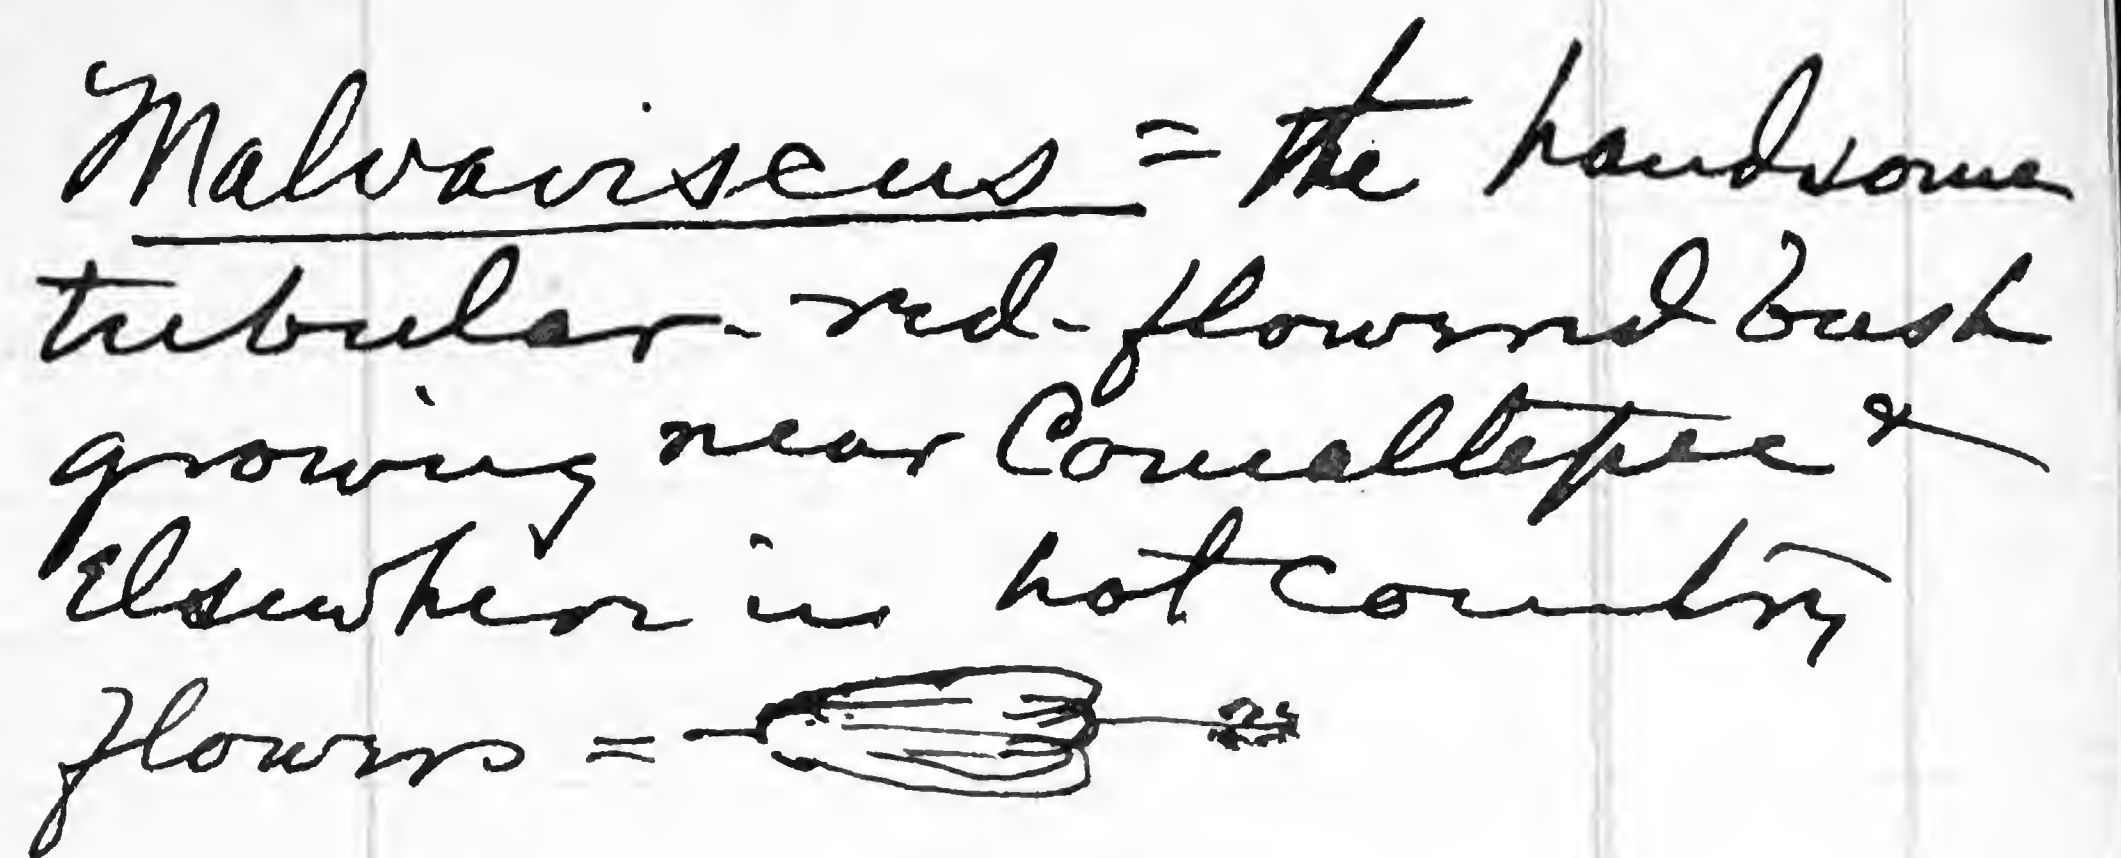 Malvaviscus = the handsome
tubular-red-flowered bush
growing near Comaltepec &
Elsewhere in hot country
flowers =